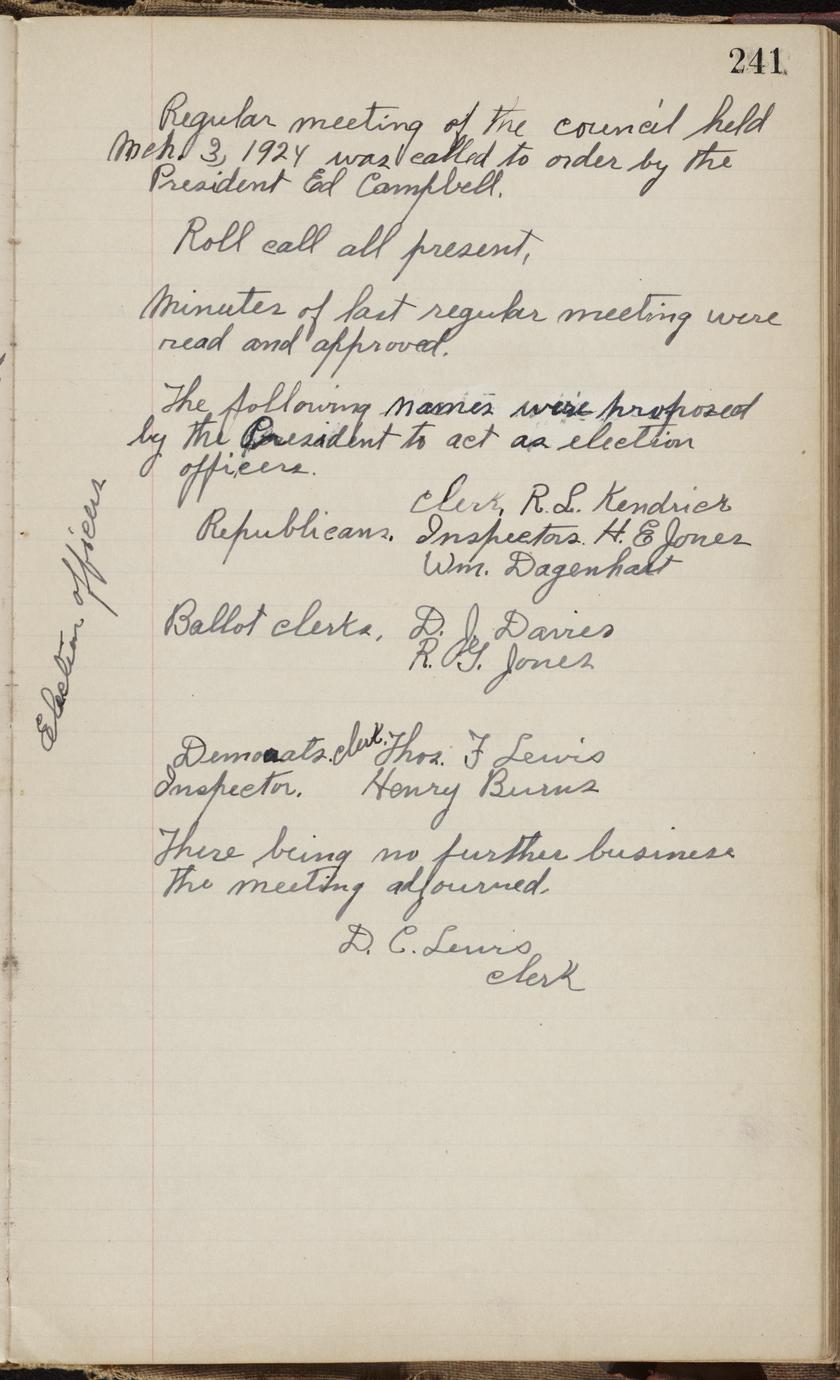 241
Regular meeting of the council held
Mch. 3, 1924 was called to order by the
President Ed Campbell.
Roll call all present,
Minutes of last regular meeting were
read and approved.
The following names were proposed
by the President to act as election
officers.
Election officers
Clerk, R. L. Kendrick
Republicans. Inspectors. H. E Jones
Wm. Dagenhart
Ballot clerks, D. J. Davies
R. G. Jones
Democrats. clerk. Thos. F Lewis
Inspector. Henry Burns
There being no further business
the meeting adjourned.
D. C. Lewis
clerk